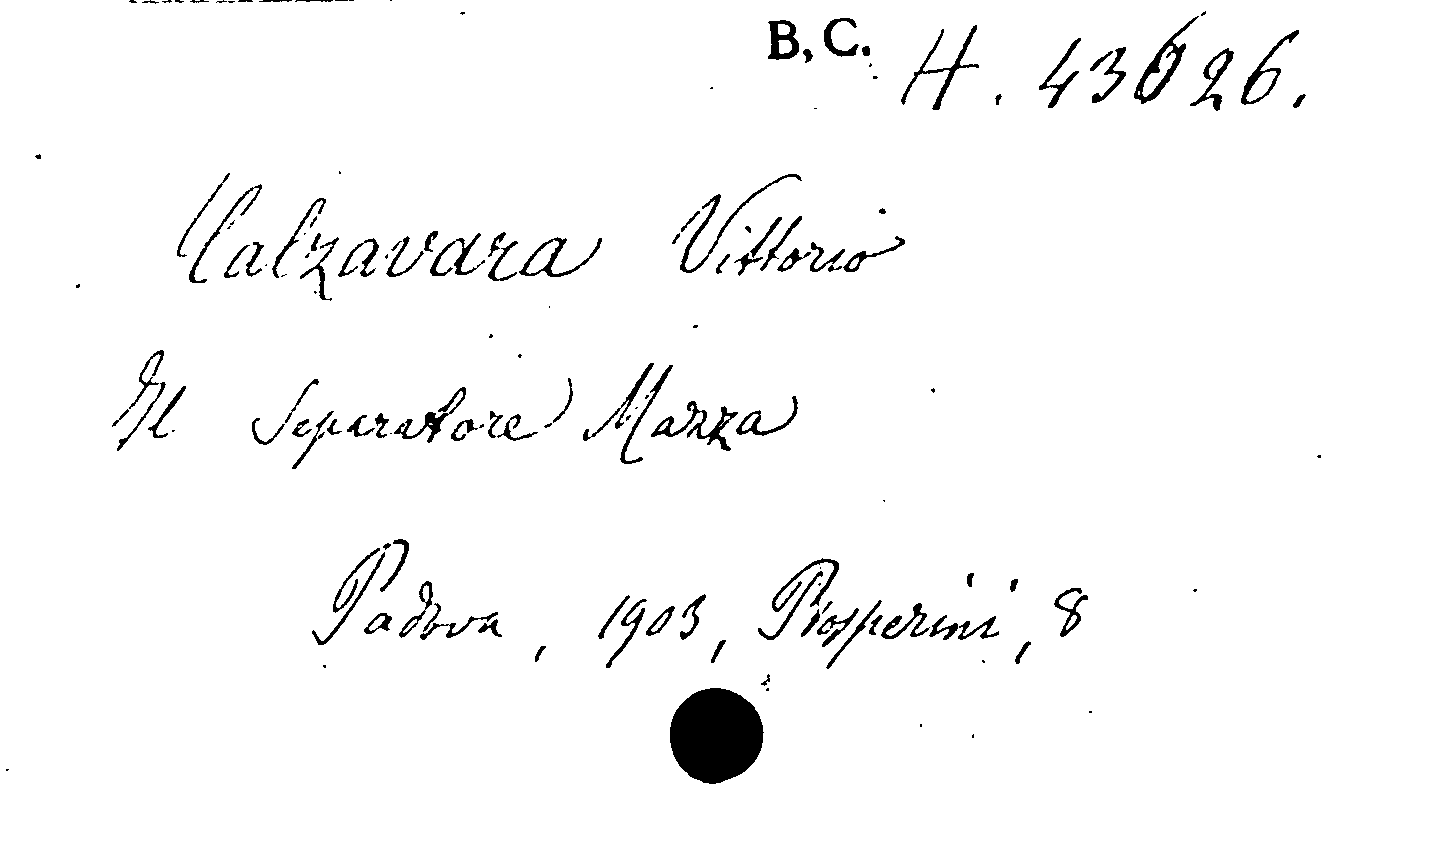 B.C. H. 43626.
Calzavara Vittorio
Il Separatore Mazza
Padova, 1903, Prosperini, 8